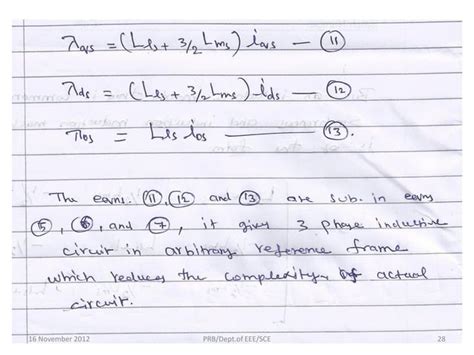 λqs = (Lls + 3/2 Lms) iqs — (11)
λds = (Lls + 3/2 Lms) ids — (12)
λos = Lls ios — (13).
The eqvns. (11), (12) and (13) are sub. in eqvns
(5), (6), and (7), it gives 3 phase inductive
circuit in arbitrary reference frame
which reduces the complexity of actual
circuit.
16 November 2012 PRB/Dept.of EEE/SCE 28